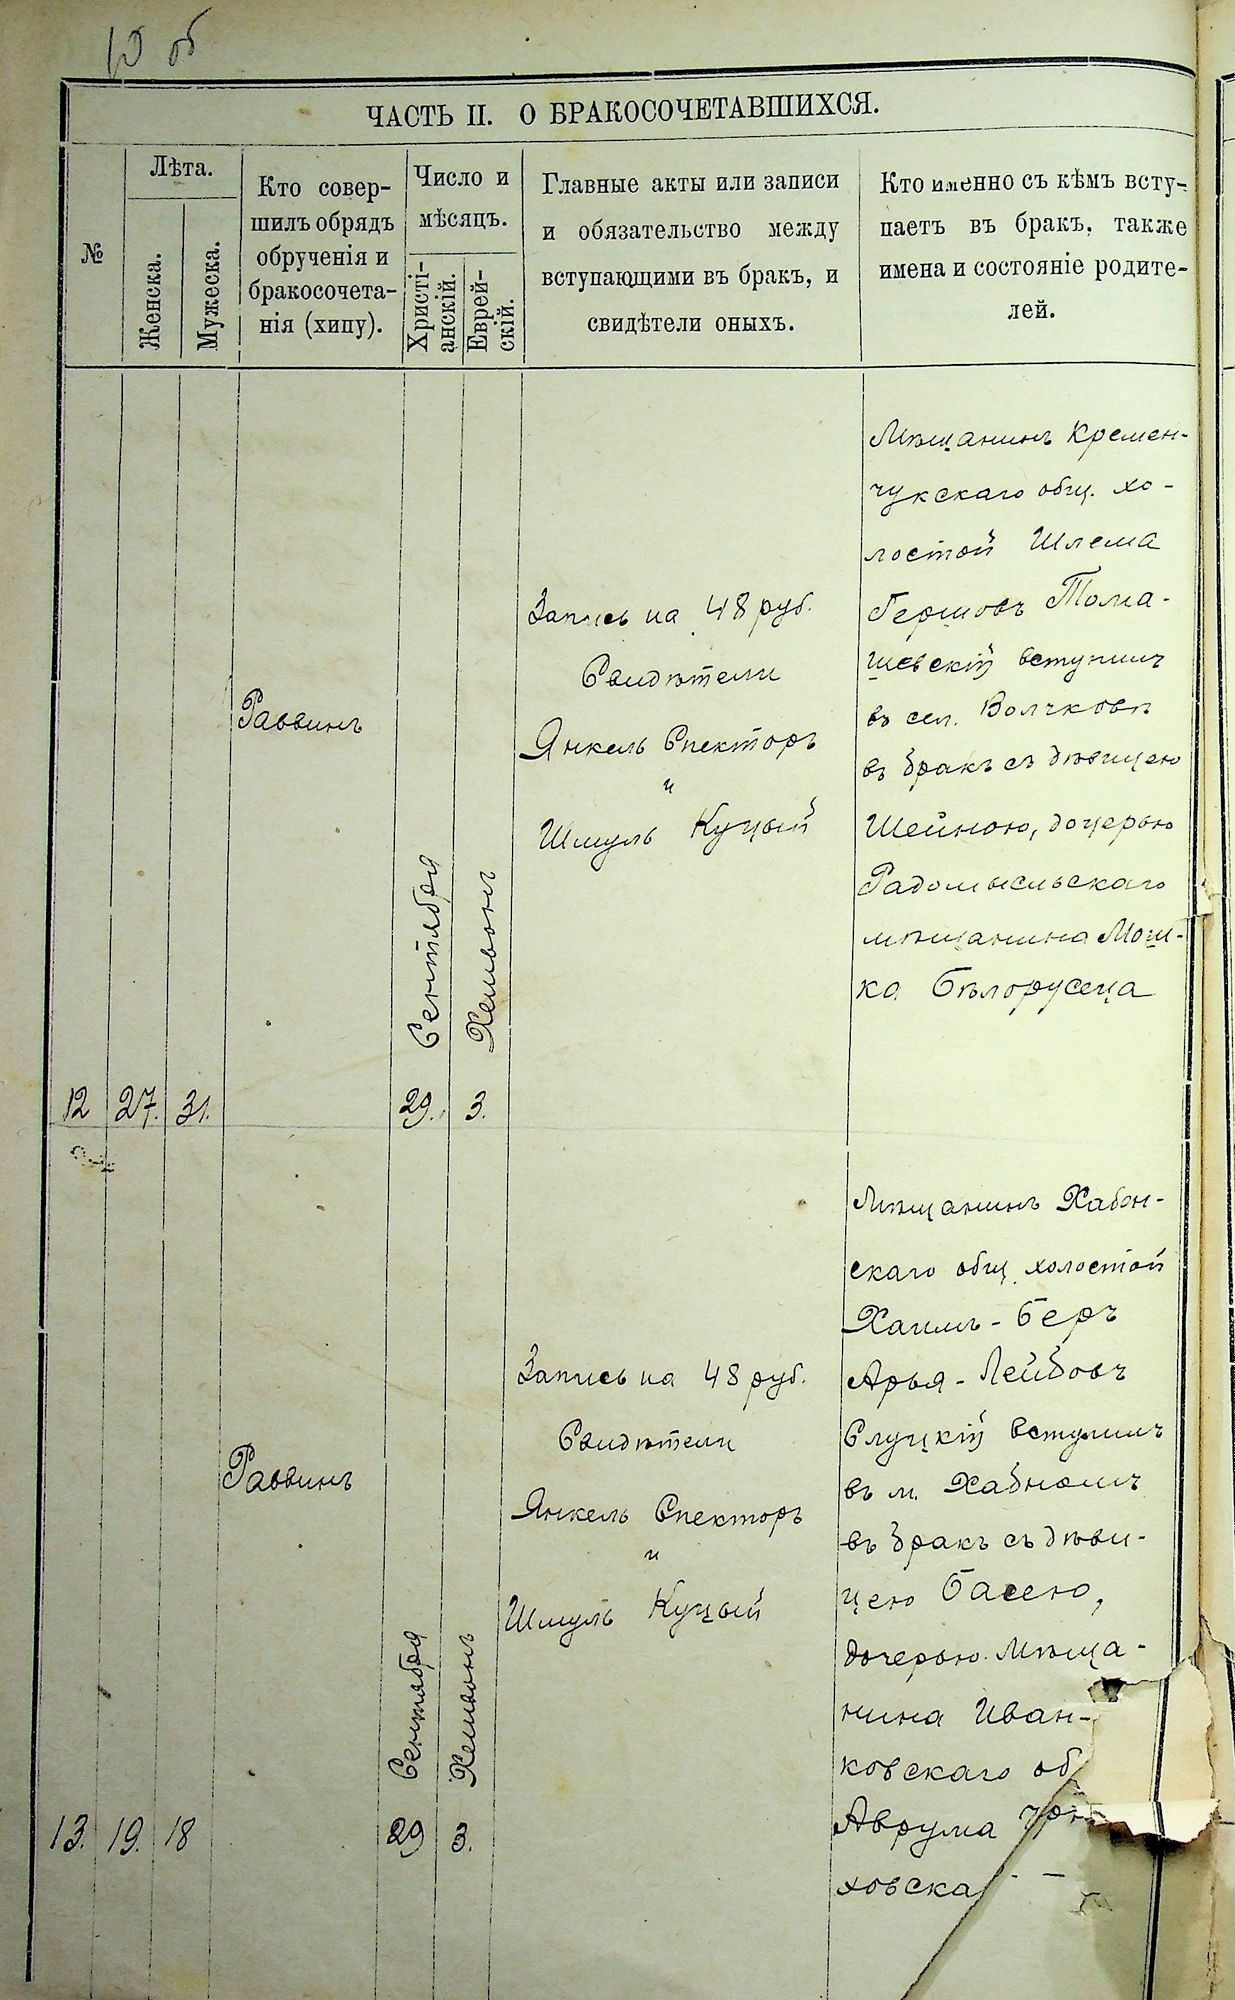 10 об
ЧАСТЬ II. О БРАКОСОЧЕТАВШИХСЯ.
№
Лѣта.
Женска.
Мужеска.
Кто совер-
шилъ обрядъ
обрученія и
бракосочета-
нія (хипу).
Число и
мѣсяцъ.
Христі-
анскій.
Еврей-
скій.
Главные акты или записи
и обязательство между
вступающими въ бракъ, и
свидѣтели оныхъ.
Кто именно съ кѣмъ всту-
паетъ въ бракъ, также
имена и состояніе родите-
лей.
12
27.
31.
Раввинъ
Сентября
29.
Хешвонъ
3.
Запись на 48 руб.
Свидѣтели
Янкель Спекторъ
и
Шмуль Куцый
Мѣщанинъ Кремен-
чукскаго общ. хо-
лостой Шлема
Гершовъ Тома-
шевскій вступилъ
въ сел. Волчковѣ
въ бракъ съ дѣвицею
Шейною, дочерью
Радомысльскаго
мѣщанина Мош-
ка Бѣлорусца
13.
19.
18
Раввинъ
Сентября
29
Хешвонъ
3.
Запись на 48 руб.
Свидѣтели
Янкель Спекторъ
и
Шмуль Куцый
Мѣщанинъ Хабен-
скаго общ. холостой
Хаимъ-Беръ
Арья-Лейбовъ
Слуцкій вступилъ
въ м. Хабномъ
въ бракъ съ дѣви-
цею Басею,
дочерью Мѣща-
нина Иван-
ковскаго об
Аврума
ховска